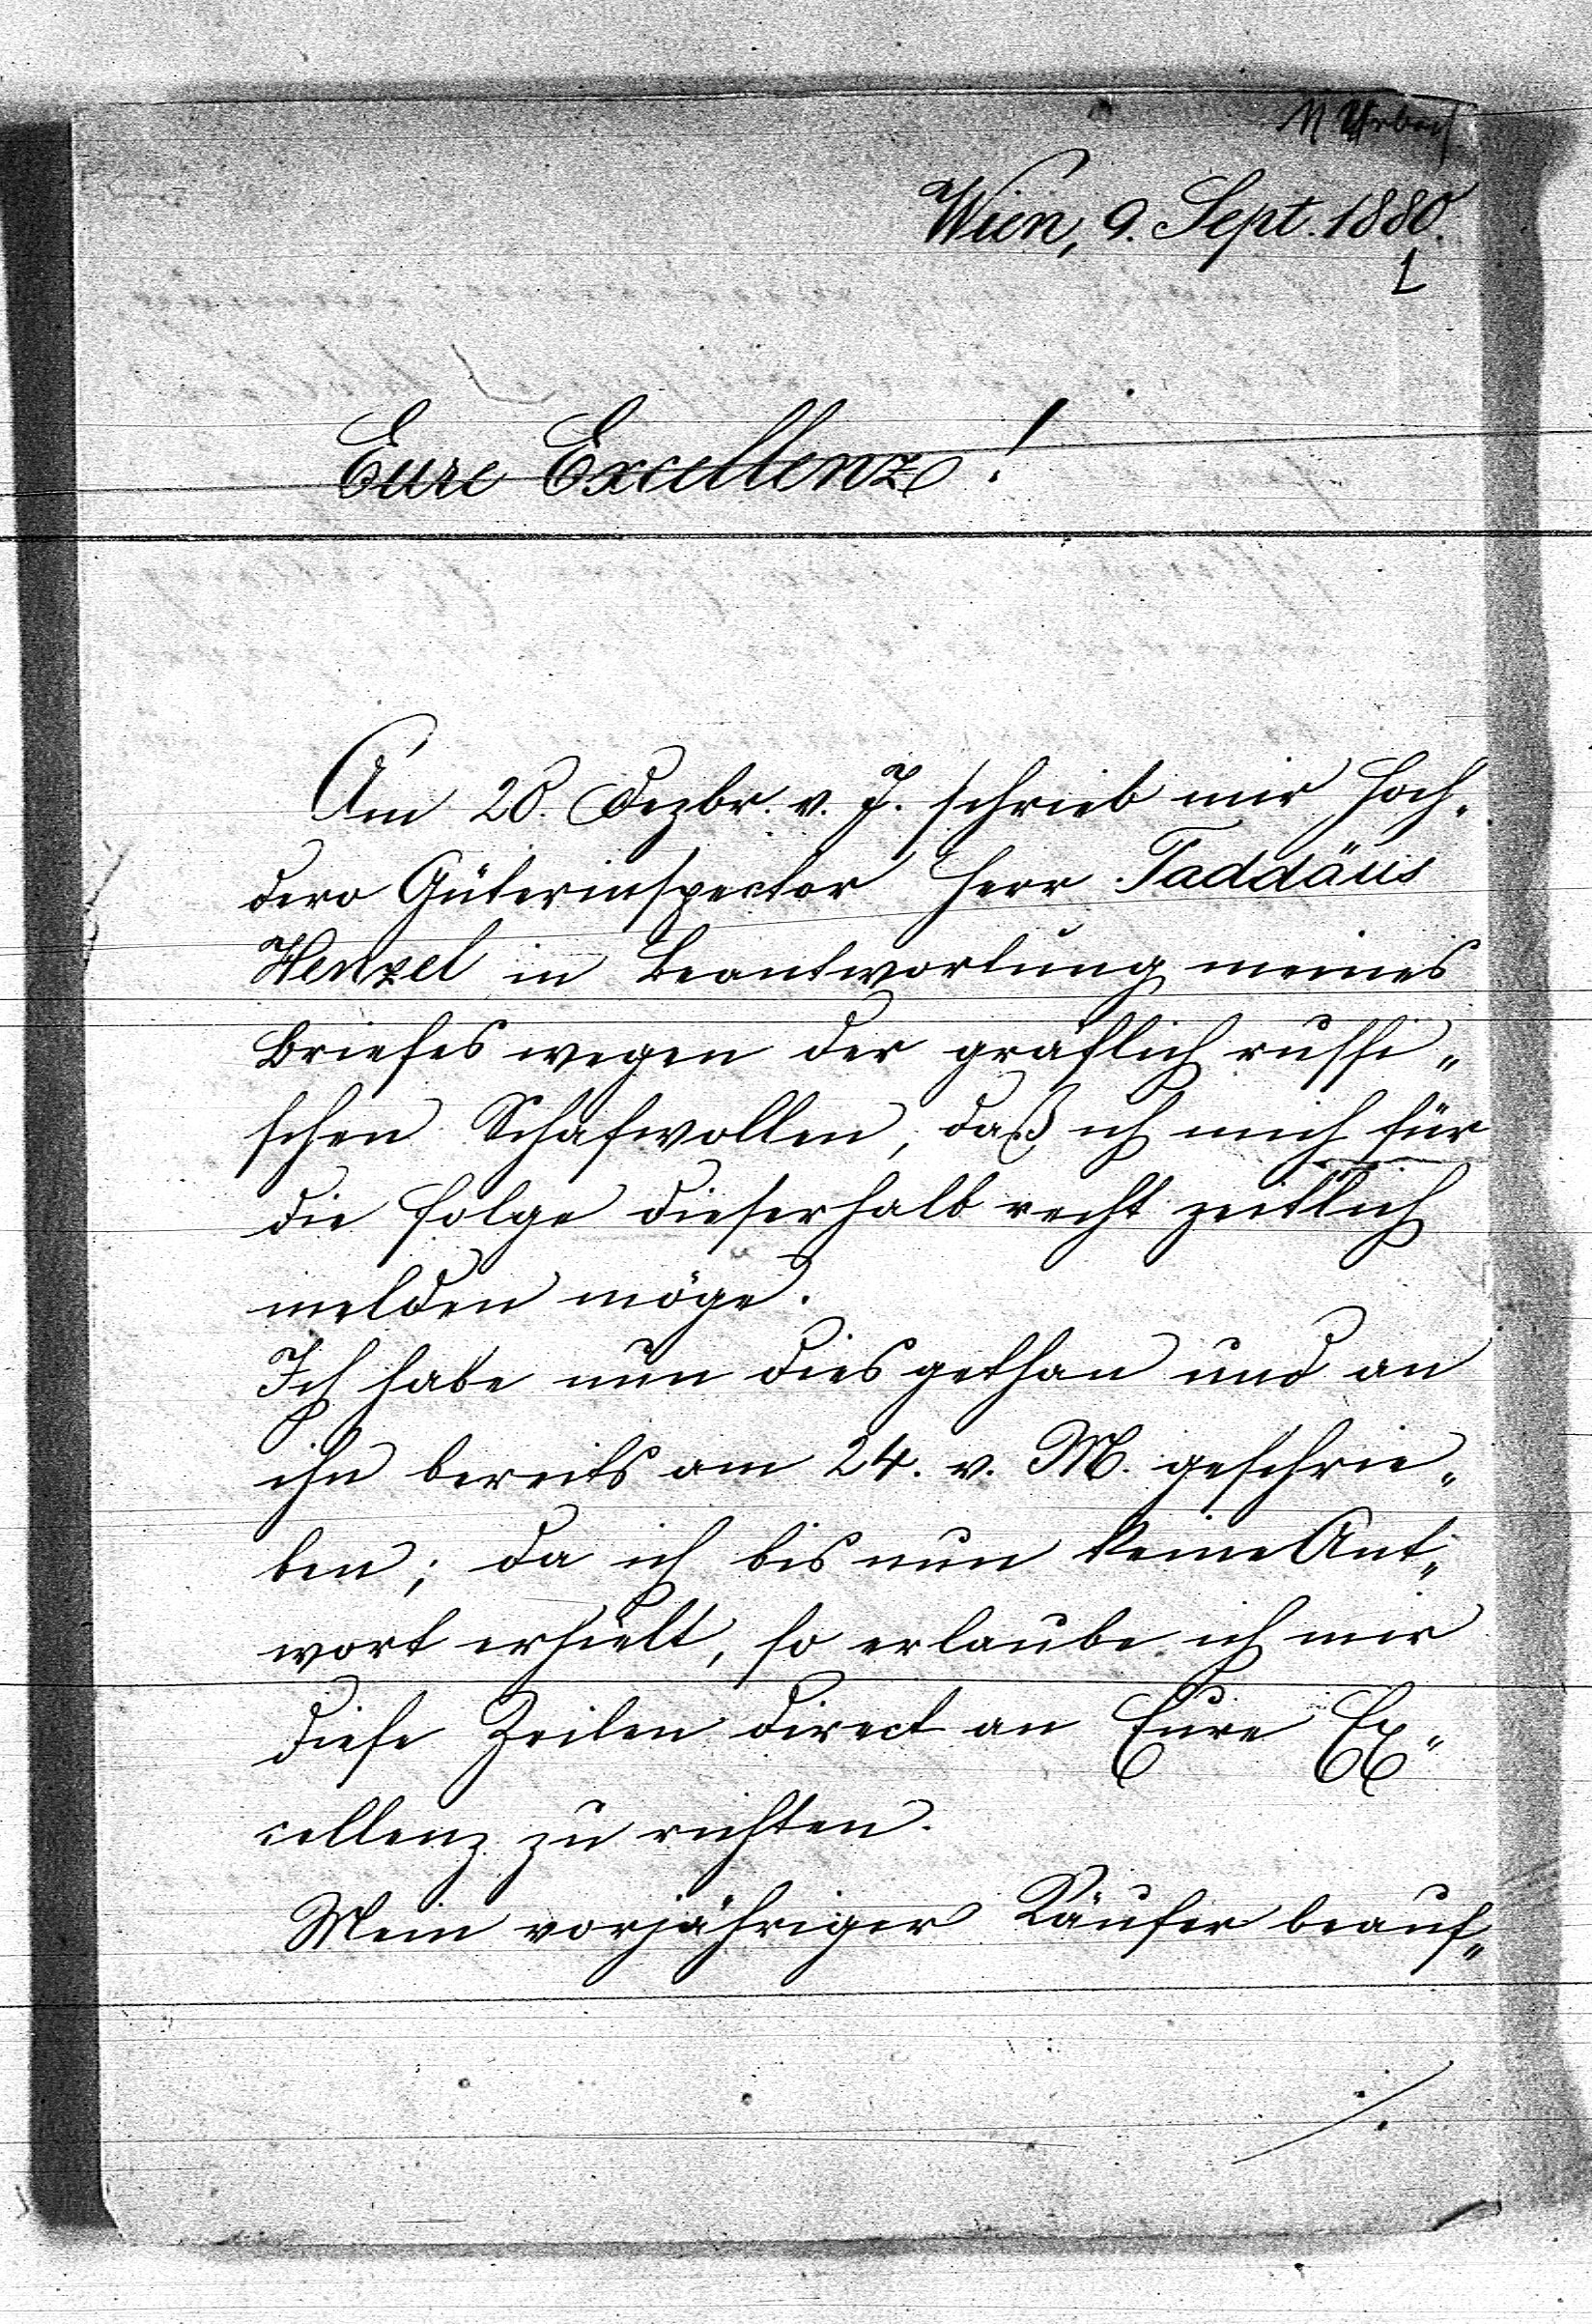 Wien, 9. Sept. 1880.
1
Eure Excellenz!
Am 20. Dezbr. v. J. schrieb mir Hoch-
dero Güterinspector Herr Taddäus
Henzel in Beantwortung meines
Briefes wegen der gräflich russi„
schen Schafwollen, daß ich mich für
die Folge dieserhalb recht zeitlich
melden möge.
Ich habe nun dies gethan und an
ihn bereits am 24. v. M. geschrie„
ben; da ich bis nun keine Ant„
wort erhielt, so erlaube ich mir
diese Zeilen direct an Eure Ex„
cellenz zu richten.
Mein vorjähriger Käufer beauf„
./.